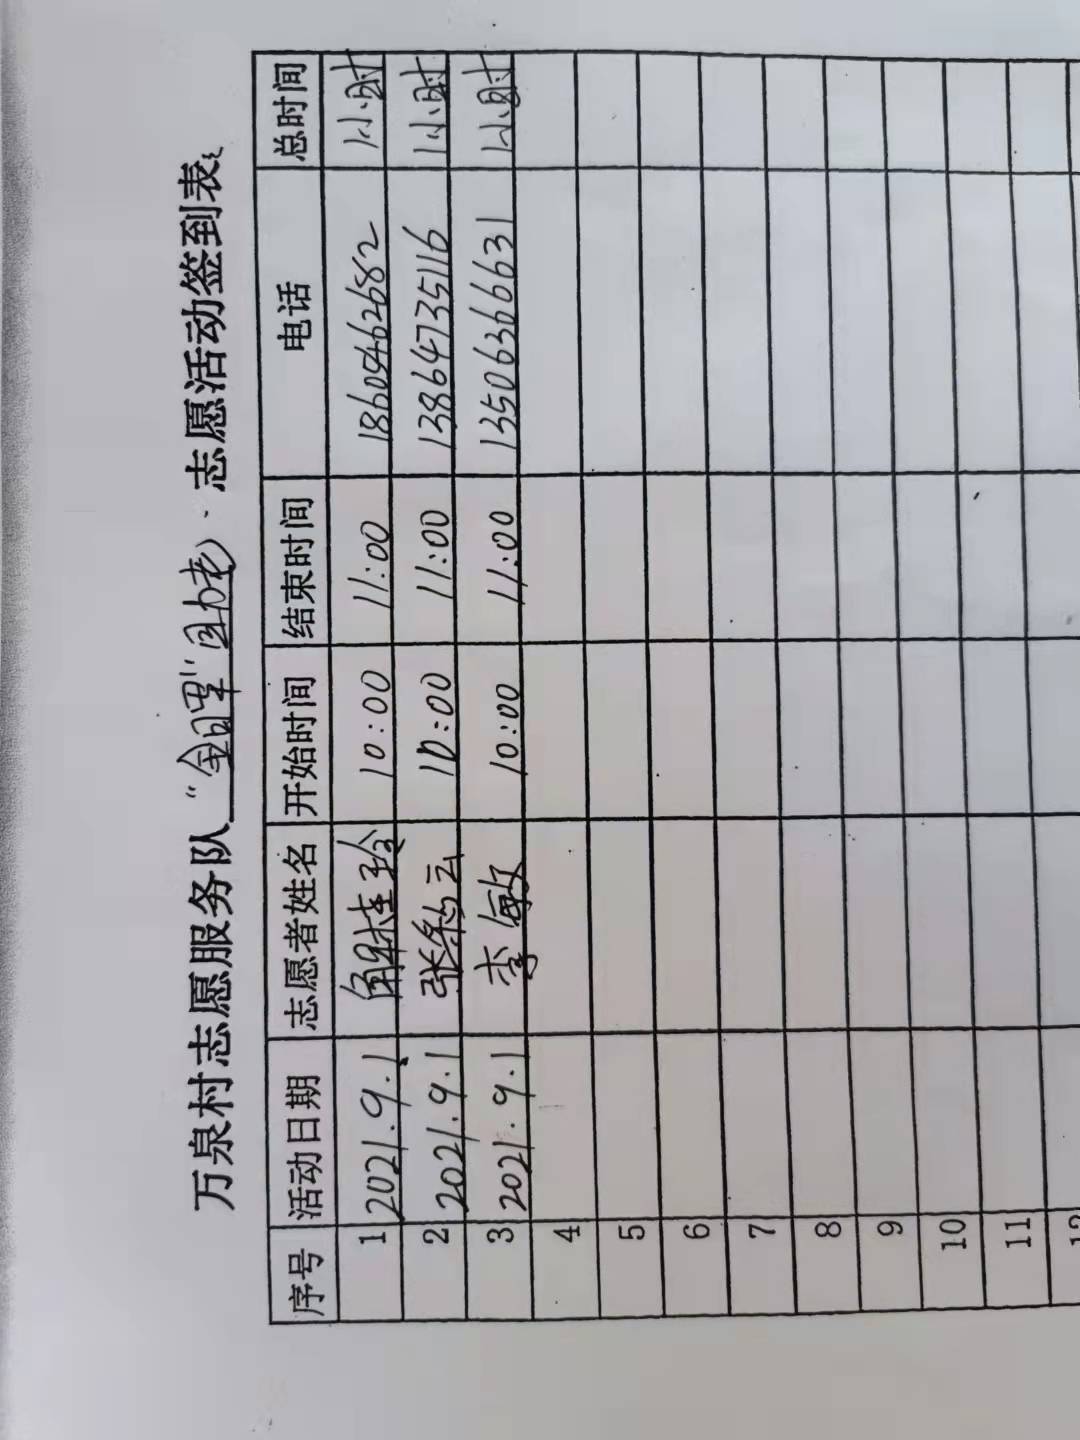 万泉村志愿服务队"金晖"助老·志愿活动签到表
序号 活动日期 志愿者姓名 开始时间 结束时间 电话 总时间
1 2021.9.1 桂玲 10:00 11:00 18605462682 1小时
2 2021.9.1 张云 10:00 11:00 13864735116 1小时
3 2021.9.1 李敏 10:00 11:00 13506366631 1小时
4
5
6
7
8
9
10
11
12